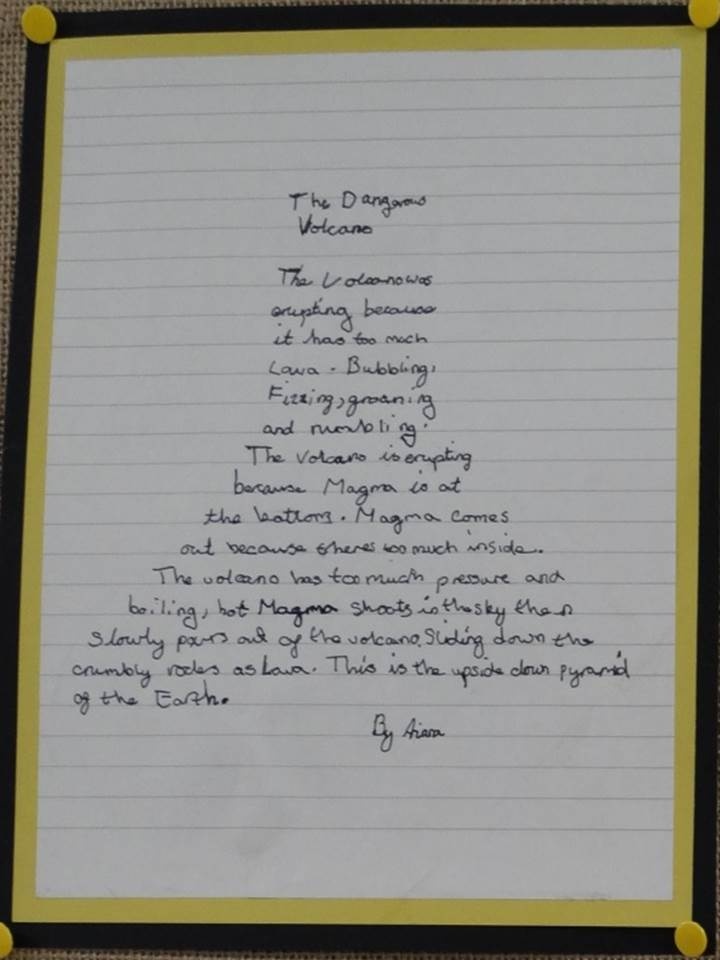 The Dangerous
Volcano
The Volcano was
erupting because
it has too much
Lava. Bubbling,
Fizzing, groaning
and rumbling.
The Volcano is erupting
because Magma is at
the bottom. Magma comes
out because theres too much inside.
The volcano has too much pressure and
boiling, hot Magma shoots in the sky then
Slowly pours out of the volcano. Sliding down the
crumbly rocks as Lava. This is the upside down pyramid
of the Earth.
By